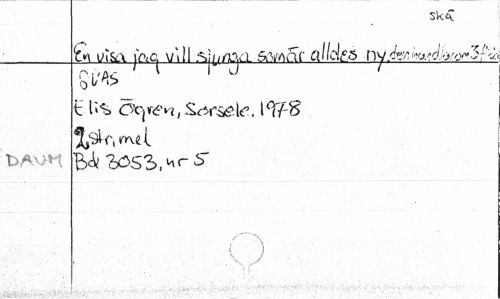 skä
En visa jag vill sjunga som är alldes ny, den handlar om 3
GUAS
Elis Ögren, Sorsele. 1978
2 str, mel
DAUM Bd 3053, nr 5